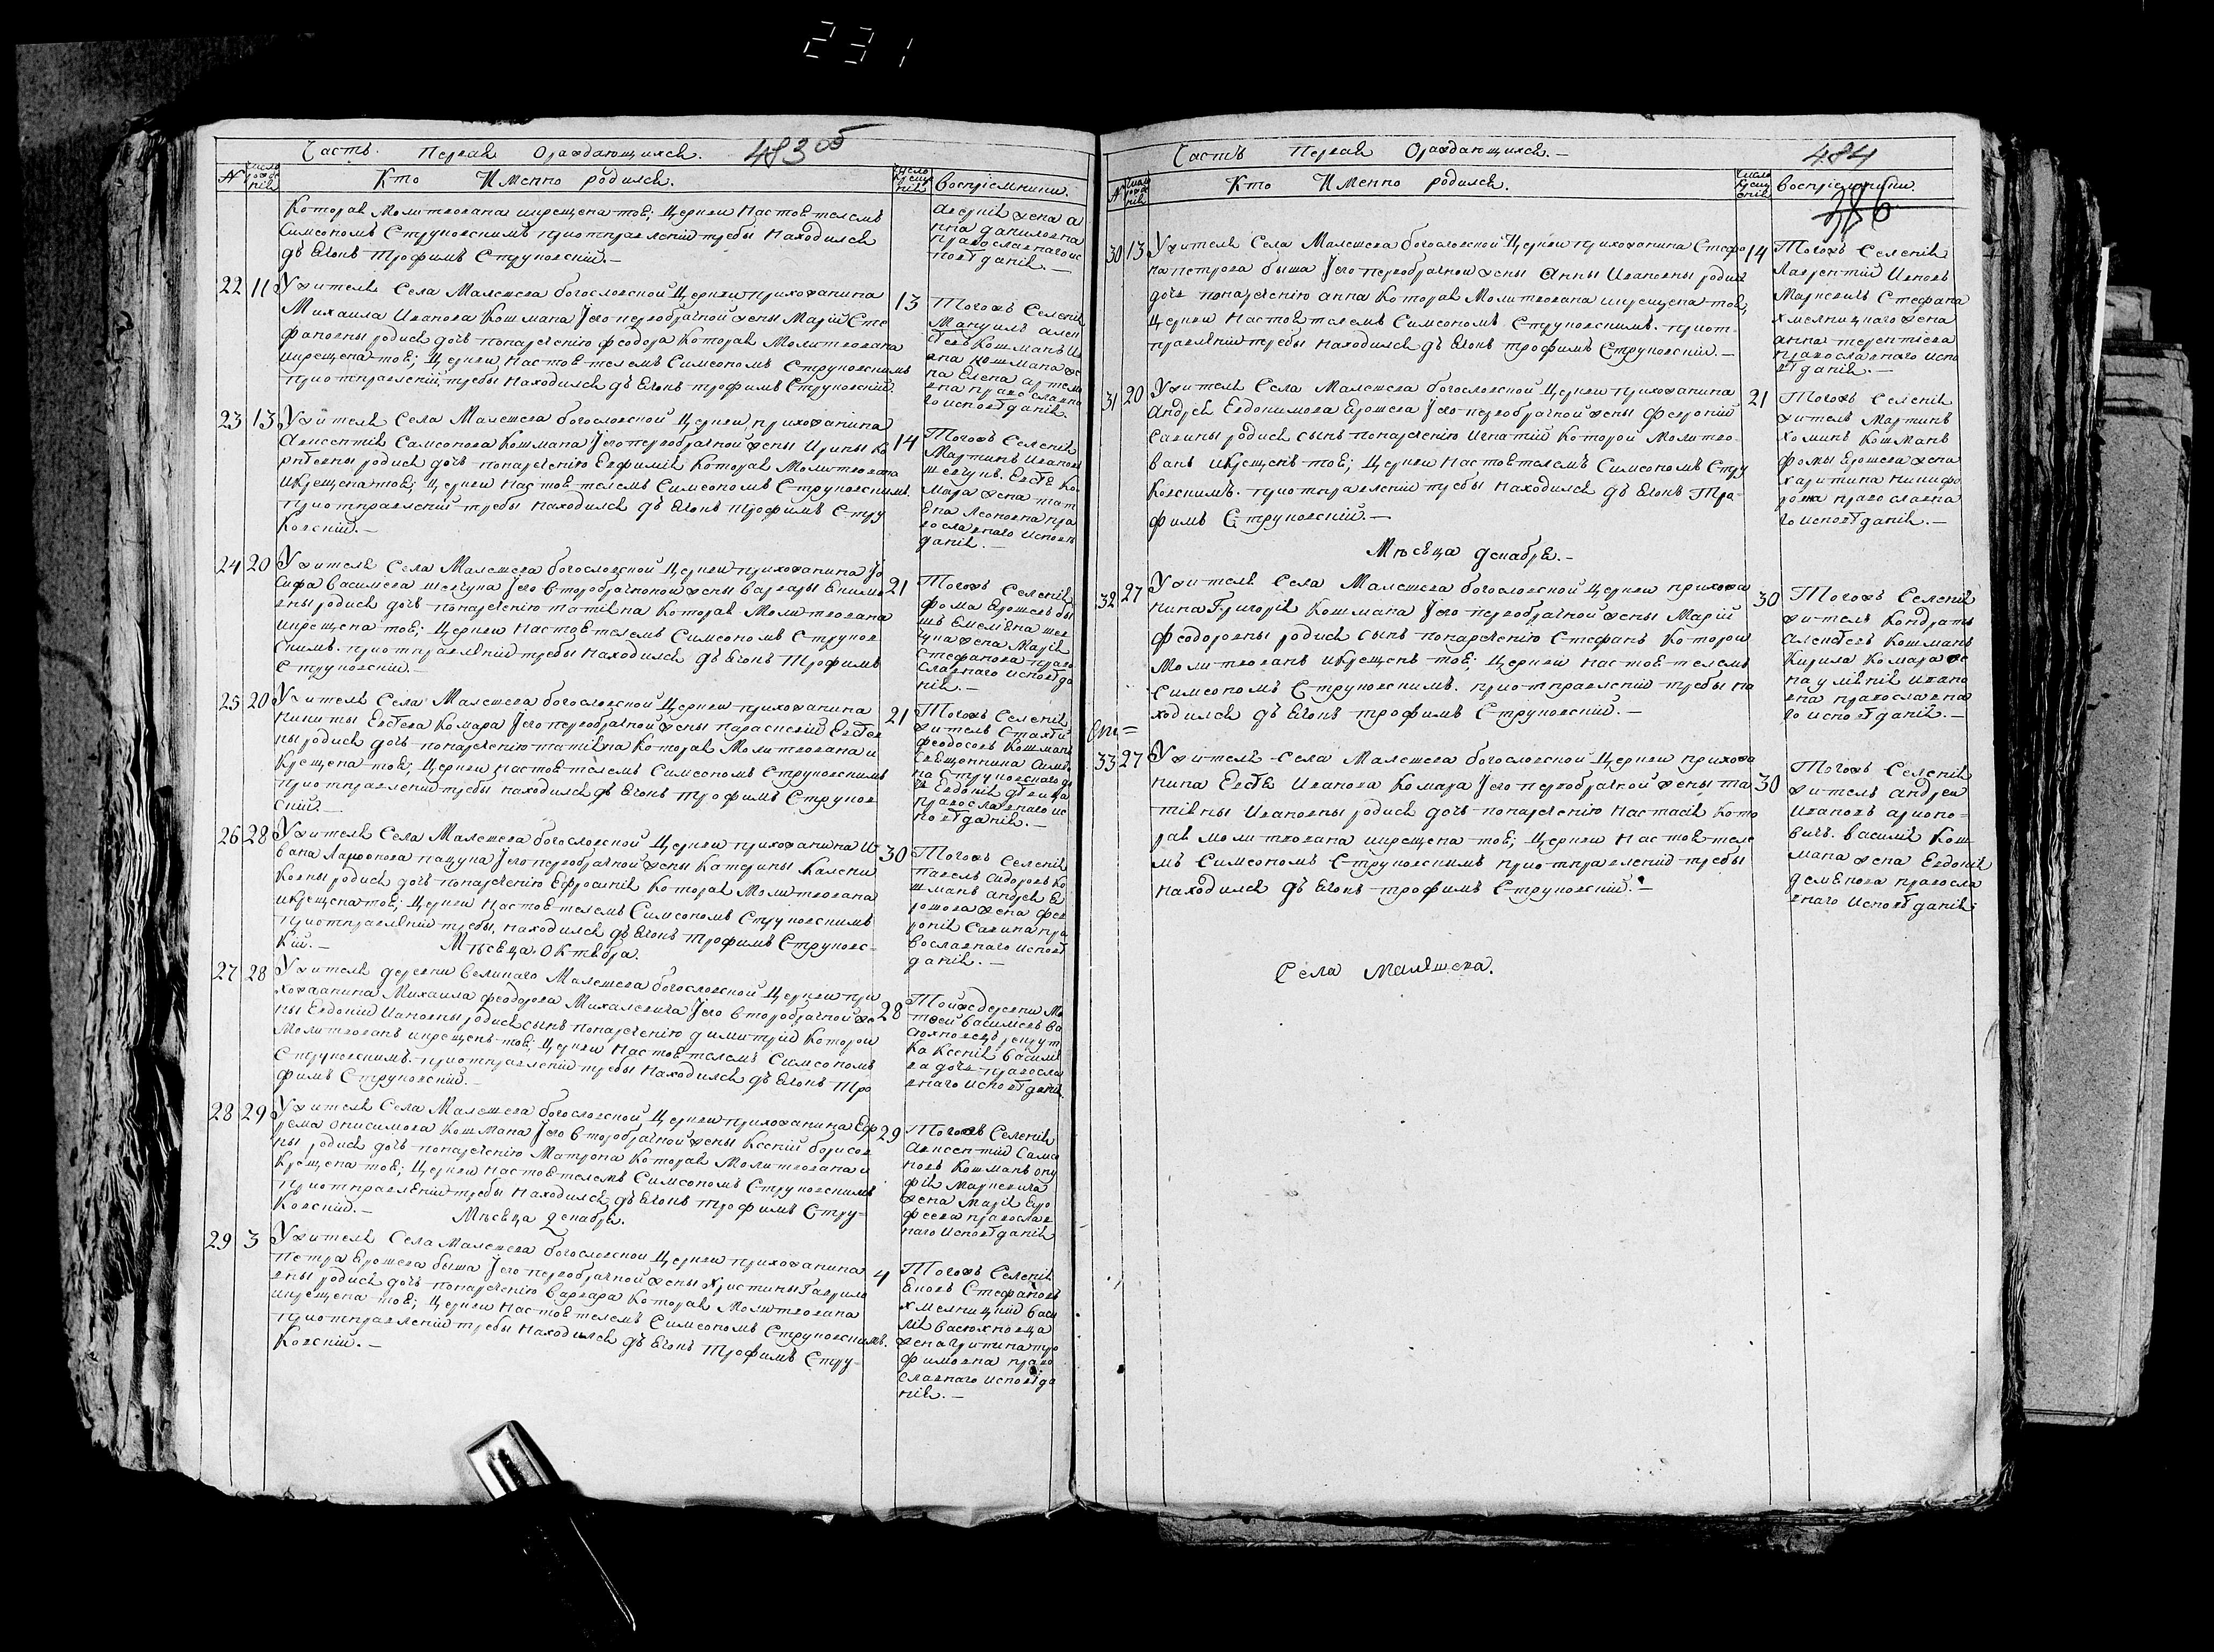 231
Часть Первая Ораждающихся. 483 об
№ Число рожде нія Кто Именно родился. Число Крещ нія Воспріемники.
Которая Молитвована икрещена тоя; Церкви Настоятелемъ
Симеономъ Струковскимъ приотправленіи требы Находился
дъ Ечокъ Трофимъ Струковскій.—
жена а
нна даниловна
православнаго ис
повѣданія.—
22 11 Ужителя Села Малешева богословской Церкви прихожанина
Михаила Иванова Кошмана Іего первобрачной жены Маріи Сте
фановны родися дочъ понаречѣнію феодора Которая Молитвована
икрещена тоя; Церкви Настоятелемъ Симеономъ Струковскимъ
приотправленіи требы Находился дъ Ечокъ трофимъ Струковскій.
13 Тогожъ Селенія
Мануилъ алек
сѣевъ Кошманъ Ив
ана Кошмана же
на Елена артемо
вна православна
го исповѣданія.
23 13 Ужителя Села Малешева богословской Церкви прихожанина
Авксентія Самсонова Кошмана Іего первобрачной жены Ирины Ко
рнѣевны родися дочъ понаречѣнію Евфимія Которая Молитвована
икрещена тоя; Церкви Настоятелемъ Симеономъ Струковскимъ.
приотправленіи требы Находился дъ Ечокъ трофимъ Стру
ковскій.—
14 Тогожъ Селенія
Мартинъ Ивановъ
шевчукъ. Евсѣя Ко
мара жена тат
Ена Леоновна пра
вославнаго исповѣ
данія.—
24 20 Ужителя Села Малешева богословской Церкви прихожанина Іо
сифа Василева шевчука Іего второбрачной жены варвары Екимо
вны родися дочъ понаречѣнію татіяна Которая Молитвована
икрещена тоя; Церкви Настоятелемъ Симеономъ Струков
скимъ. приотправленіи требы Находился дъ Ечокъ Трофимъ
Струковскій.—
21 Тогожъ Селенія
фома Ерошевъ бы
шъ Емеліяна шев
чука жена Марія
Стефанова право
славнаго исповѣда
нія.—
25 20 Ужителя Села Малешева богословской Церкви прихожанина
Никиты Евсѣева Комара Іего первобрачной жены параскевіи Евсѣев
ны родися дочъ понаречѣнію татіяна Которая Молитвована и
крещена тоя; Церкви Настоятелемъ Симеономъ Струковскимъ
приотправленіи требы находился дъ Ечокъ трофимъ Струков
скій.—
21 Тогожъ Селенія
житель Стахѣй
феодосовъ Кошманъ
Священника Симео
на Струковскаго до
чъ Евдокія дѣвица
православнаго ис
повѣданія.—
26 28 Ужителя Села Малешева богословской Церкви прихожанина И
вана пацука Іего первобрачной жены Катерины Калени
ковны родися дочъ понаречѣнію Ефросинія Которая Молитвована
икрещена тоя; Церкви Настоятелемъ Симеономъ Струковскимъ
приотправленіи требы, находился дъ Ечокъ трофимъ Струковс-
кій.—
30 Тогожъ Селенія
павелъ Сидоровъ Ко
шманъ андрея Е
рошова жена фев
ронія Савина пра
вославнаго исповѣ
данія.—
Мѣсяца Октября.
27 28 Ужителя деревни великаго Малешева богословской Церкви при
хожанина Михаила феодорова Михалевича Іего второбрачной же
ны Евдокіи Ивановны родися сынъ понаречѣнію димитрій Которой
Молитвованъ икрещенъ тоя; Церкви Настоятелемъ Симеономъ
Струковскимъ. приотправленіи требы Находился дъ Ечокъ Тро
фимъ Струковскій.—
28 Тойждеревни Ма
тфей василевъ ва
сюхновецъ рекрут
ка Ксенія василе
ва дочъ правосла
внаго исповѣданія
28 29 Ужителя Села Малешева богословской Церкви прихожанина Еф
рема Онисимова Кошмана Іего второбрачной жены Ксеніи борисов
ны родися дочъ понаречѣнію Матрона Которая Молитвована и
крещена тоя; Церкви Настоятелемъ Симеономъ Струковскимъ
приотправленіи требы Находился дъ Ечокъ трофимъ Стру-
ковскій.—
29 Тогожъ Селенія
Авксентій Самсо
новъ Кошманъ ону
фія Маркевича
жена Марія Еро
феева православ
наго исповѣданія
Мѣсяца декабря.
29 3 Ужителя Села Малешева богословской Церкви прихожанина
Петра Ерошева быша Іего первобрачной жены Христины Гаврило
вны родися дочъ понаречѣнію варвара Которая Молитвована
икрещена тоя; Церкви Настоятелемъ Симеономъ Струковскимъ.
приотправленіи требы Находился дъ Ечокъ Трофимъ Стру-
ковскій.—
4 Тогожъ Селенія
Ековъ Стефановъ
хмелницкій Васи
лія васюхновца
жена Ірина тро
фимовна право
славнаго исповѣда
нія.—
Часть Первая Ораждающихся.— 484
№ Число рожде нія Кто Именно родился. Число Крещ нія Воспріемники.
386
30 13 Ужителя Села Малешева богословской Церкви прихожанина Стефа
на петрова быша Іего первобрачной жены Анны Ивановны родися
дочъ понаречѣнію анна Которая Молитвована икрещена тоя;
Церкви Настоятелемъ Симеономъ Струковскимъ. приот-
правленіи требы Находился дъ Ечокъ трофимъ Струковскій.—
14 Тогожъ Селенія
Лаврентій Ивановъ
Маркевичъ Стефана
хмелницкаго жена
анна терентіева
православнаго испо
вѣданія.—
31 20 Ужителя Села Малешева богословской Церкви прихожанина
Андрея Евдокимова Ерошева Іего первобрачной жены февроніи
Савины родися сынъ понаречѣнію Игнатій Которой Молитво-
ванъ икрещенъ тоя; Церкви Настоятелемъ Симеономъ Стру
ковскимъ. приотправленіи требы Находился дъ Ечокъ Тро-
фимъ Струковскій.—
21 Тогожъ Селенія
житель Мартинъ
хоминъ Кошманъ
фомы Ерошева жена
харитина никифо
рова православна
го исповѣданія.—
Мѣсяца декабря.—
32 27 Ужителя Села Малешева богословской Церкви прихожа
нина Григорія Кошмана Іего первобрачной жены Маріи
феодоровны родися сынъ понаречѣнію Стефанъ Которой
Молитвованъ икрещенъ тоя; Церкви настоятелемъ
Симеономъ Струковскимъ. приотправленіи требы на
ходился дъ Ечокъ трофимъ Струковскій.—
30 Тогожъ Селенія
житель Кондратъ
алексѣевъ Кошманъ
Кирила Комара же
на уліянія ивано
вна православна
го исповѣданія.—
33 27 Ужителя Села Малешева богословской Церкви прихожа
нина Евсѣя Иванова Комара Іего первобрачной жены та
тіяны Ивановны родися дочъ понаречѣнію Настасія Кото
рая Молитвована икрещена тоя; Церкви Настоятеле
мъ Симеономъ Струковскимъ приотправленіи требы
находился дъ Ечокъ трофимъ Струковскій.—
30 Тогожъ Селенія
житель андрей
Ивановъ
вичъ. василія Кош
мана жена Евдокія
демѣнова правосла
внаго исповѣданія
Села Малешева.